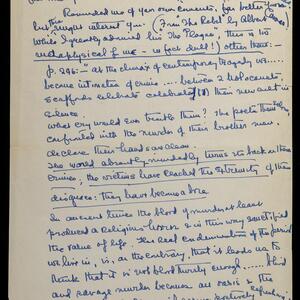 Reminded me of your own comments, for better
but this might interest you. (From 'The Rebel' by Albert
While I greatly admired his 'The Plague', then is too
metaphysical for me - in fact dull!) other times:-
p. 246:- "At the climax of contemporary tragedy we
become intimates of crime .... between 2 holocausts,
scaffolds celebrate celebrate their new cult in
silence.
What cry would ever trouble them? The poets
confronted with the murder of their brother men
declare their hands are clean.
The world absently turns its back on these
crimes, the victims have reached the extremity of their
disgrace: they have become a bore
In ancient times the blood of murder at least
produced a religious horror & in this way sanctified
the value of life. The real condemnation of the period
we live in, is, on the contrary, that it leads us to
think that it is not bloody enough .... blood
and savage murder becomes an oasis & the